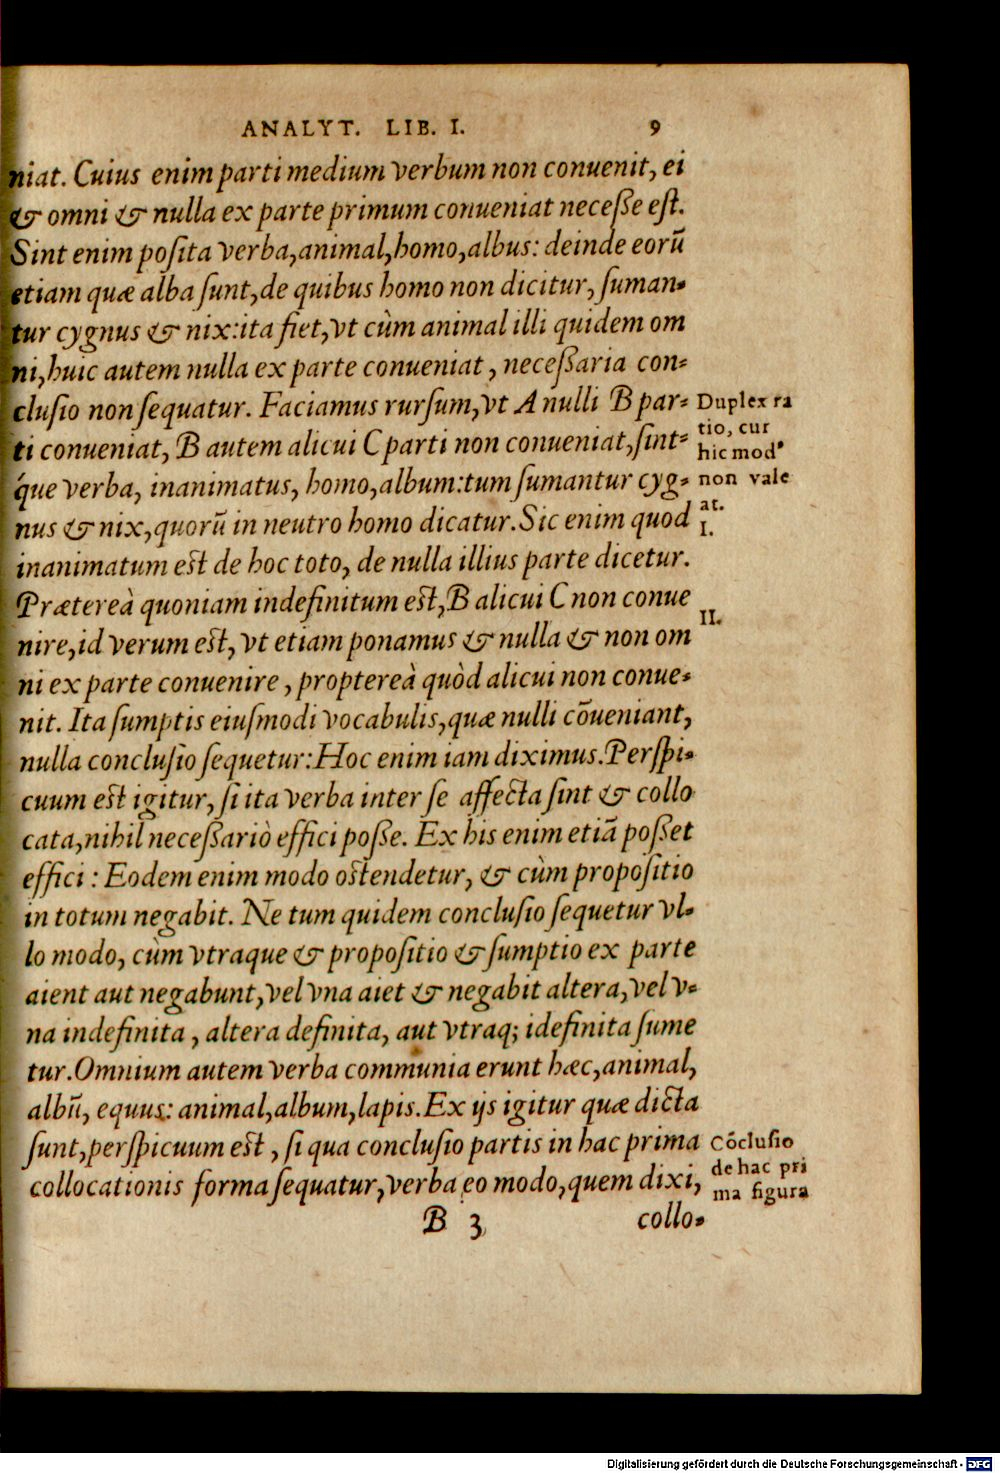 ANALYT. LIB. I. 9
niat. Cuius enim parti medium verbum non conuenit, ei
& omni & nulla ex parte primum conueniat neceße est.
Sint enim posita verba, animal, homo, albus: deinde eorũ
etiam quæ alba sunt, de quibus homo non dicitur, suman-
tur cygnus & nix: ita fiet, vt cùm animal illi quidem om
ni, huic autem nulla ex parte conueniat, neceßaria con-
clusio non sequatur. Faciamus rursum, vt A nulli B par-
ti conueniat, B autem alicui C parti non conueniat, sint-
q́ue verba, inanimatus, homo, album: tum sumantur cyg-
nus & nix, quorũ in neutro homo dicatur. Sic enim quod
inanimatum est de hoc toto, de nulla illius parte dicetur.
Prætereà quoniam indefinitum est, B alicui C non conue
nire, id verum est, vt etiam ponamus & nulla & non om
ni ex parte conuenire, proptereà quòd alicui non conue-
nit. Ita sumptis eiusmodi vocabulis, quæ nulli cõueniant,
nulla conclusio sequetur: Hoc enim iam diximus. Perspi-
cuum est igitur, si ita verba inter se affecta sint & collo
cata, nihil neceßariò effici poße. Ex his enim etiã poßet
effici: Eodem enim modo ostendetur, & cùm propositio
in totum negabit. Ne tum quidem conclusio sequetur vl-
lo modo, cùm vtraque & propositio & sumptio ex parte
aient aut negabunt, vel vna aiet & negabit altera, vel v-
na indefinita, altera definita, aut vtraq; idefinita sume
tur. Omnium autem verba communia erunt hæc, animal,
albũ, equus: animal, album, lapis. Ex ijs igitur quæ dicta
sunt, perspicuum est, si qua conclusio partis in hac prima
collocationis forma sequatur, verba eo modo, quem dixi,
B 3 collo-
Duplex ra
tio, cur
hic mod'
non vale
at.
I.
II.
Cõclusio
de hac pri
ma figura
Digitalisierung gefördert durch die Deutsche Forschungsgemeinschaft - DFG